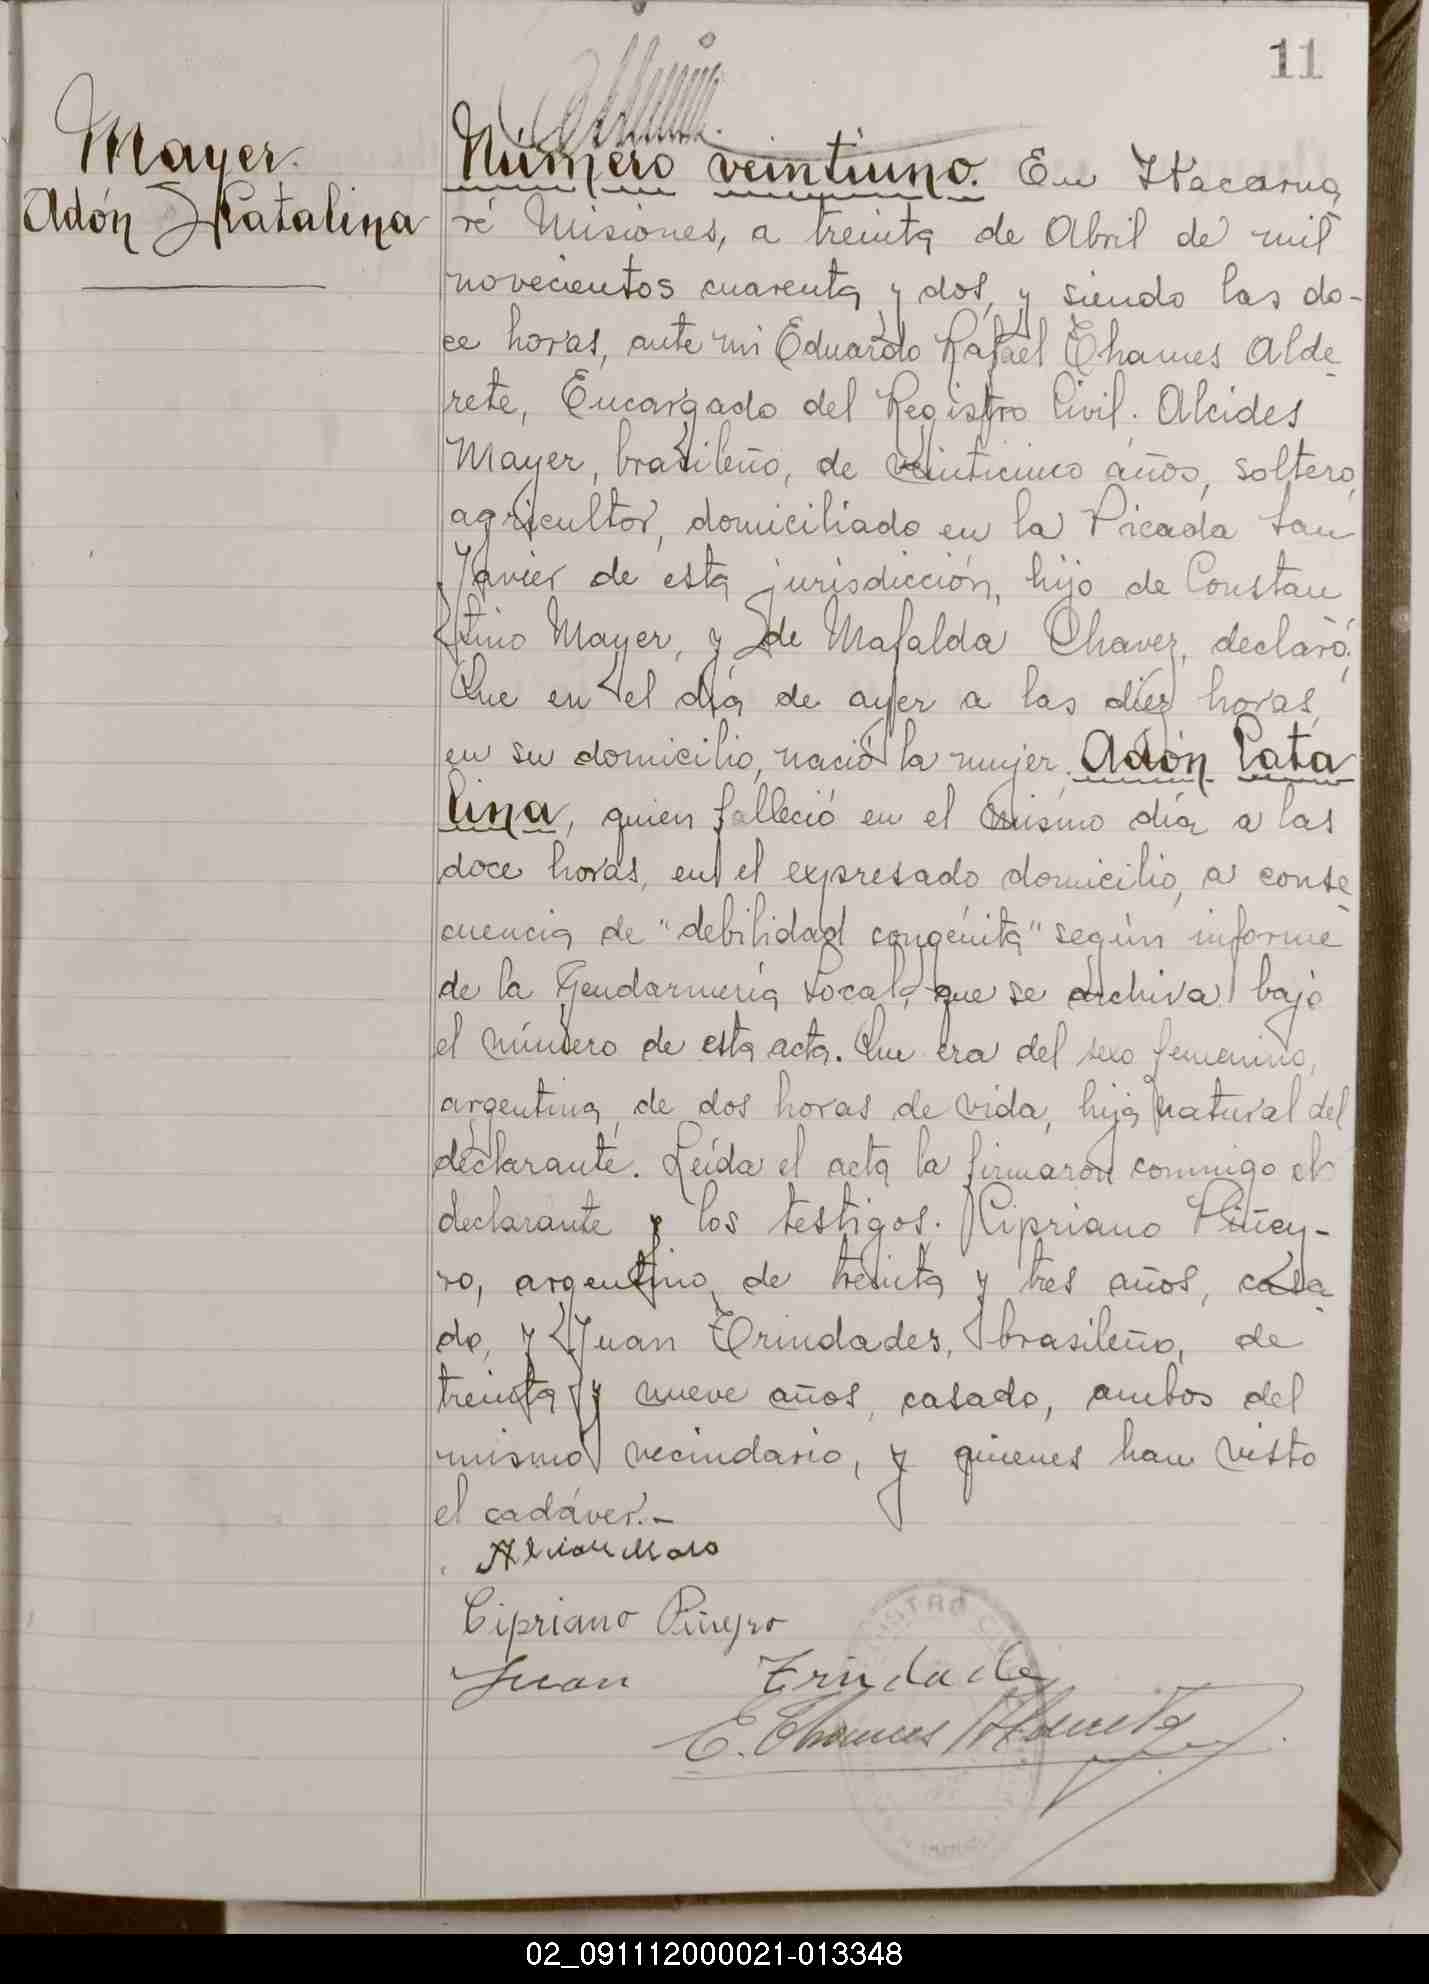 11
Mayer.
Adón Catalina
Número veintiuno. En Itacarua
ré Misiones, a treinta de Abril de mil
novecientos cuarenta y dos, y siendo las do-
ce horas, ante mi Eduardo Rafael Thames Alde
rete, Encargado del Registro Civil. Alcides
Mayer, brasileño, de veinticinco años, soltero,
agricultor, domiciliado en la Picada San
Javier de esta jurisdicción, hijo de Constan
tino Mayer, y de Mafalda Chavez, declaró:
Que en el día de ayer a las diez horas,
en su domicilio, nació la mujer, Adón Cata
lina, quien falleció en el mismo día a las
doce horas, en el expresado domicilio, a conse
cuencia de "debilidad congénita" según informe
de la Gendarmería Local, que se archiva bajo
el número de esta acta. Que era del sexo femenino,
argentina, de dos horas de vida, hija natural del
declarante. Leída el acta la firmaron conmigo el
declarante y los testigos. Cipriano Piñey-
ro, argentino, de treinta y tres años, casa
do, y Juan Trindades, brasileño, de
treinta y nueve años, casado, ambos del
mismo vecindario, y quienes han visto
el cadáver.-
Cipriano Piñeyro
Juan Trindade
E. Thames
REGISTRO
02_091112000021-013348